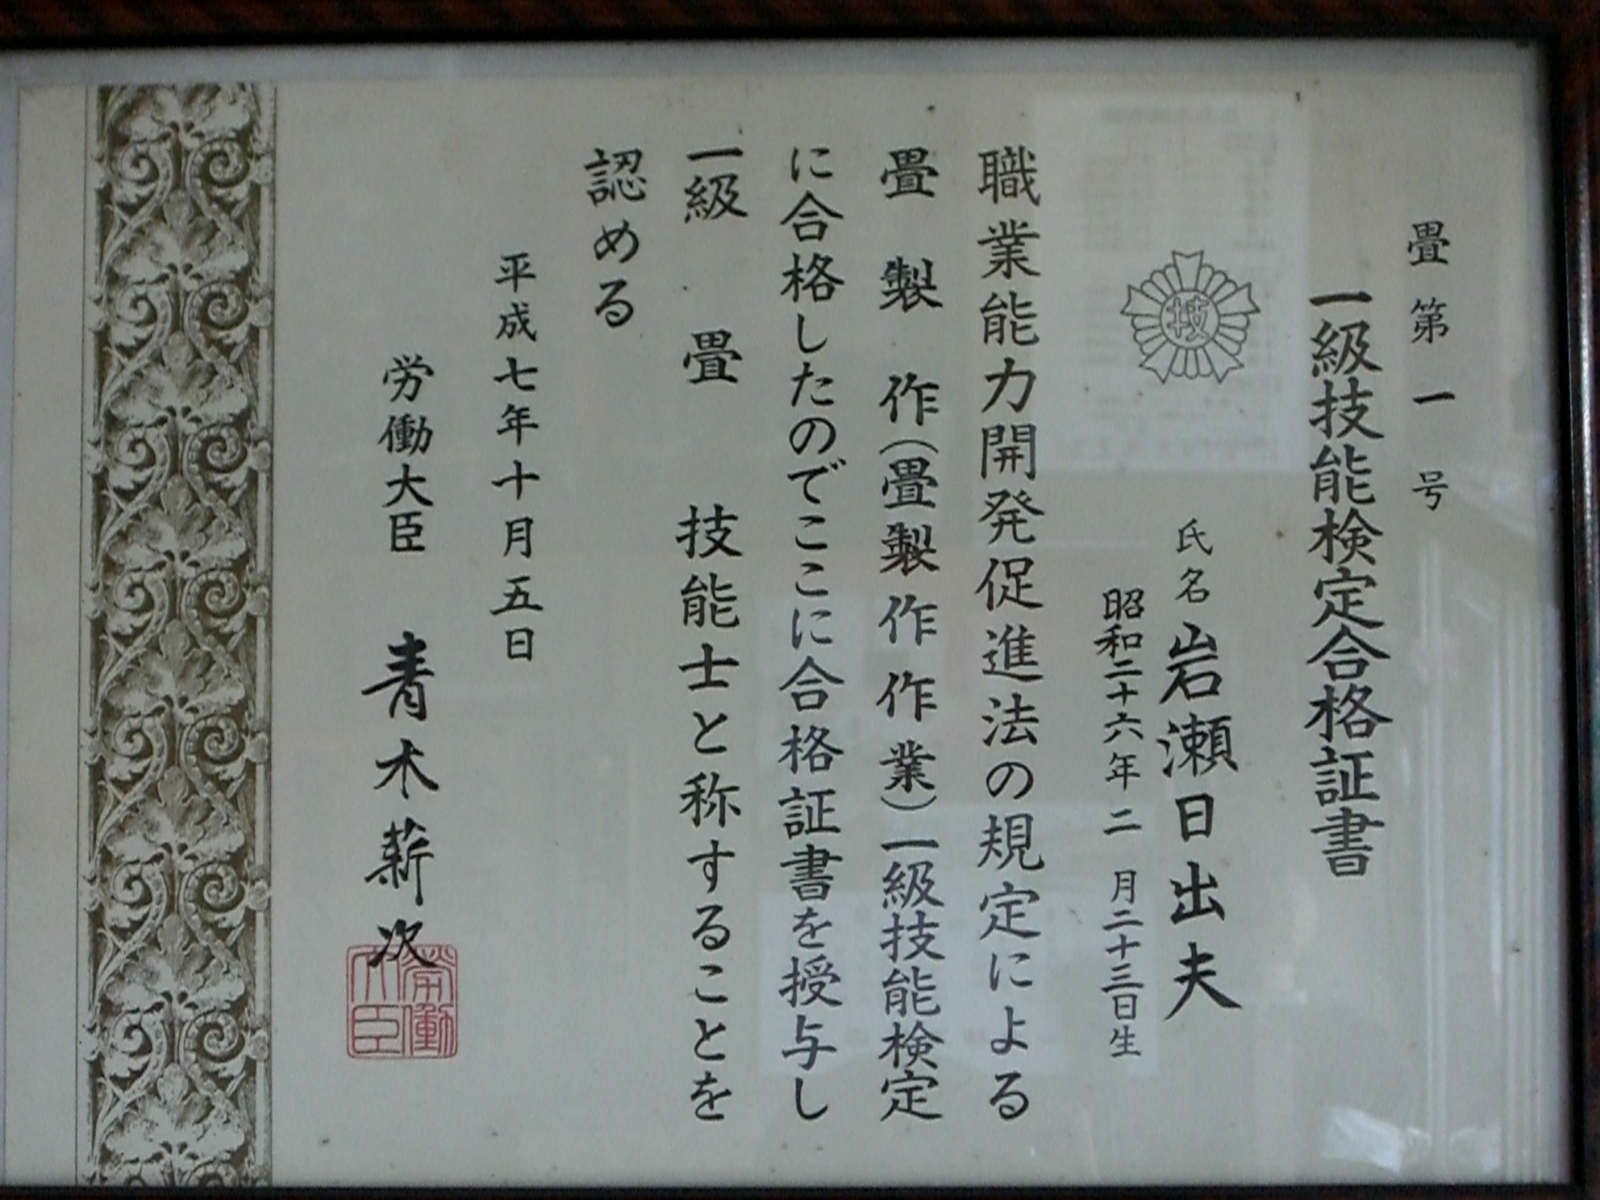 畳第一号
一級技能検定合格証書
技
氏名 岩瀬日出夫
昭和二十六年二月二十三日生
職業能力開発促進法の規定による
畳製作(畳製作作業)一級技能検定
に合格したのでここに合格証書を授与し
一級 畳 技能士と称することを
認める
平成七年十月五日
労働大臣 青木薪次
労働大臣